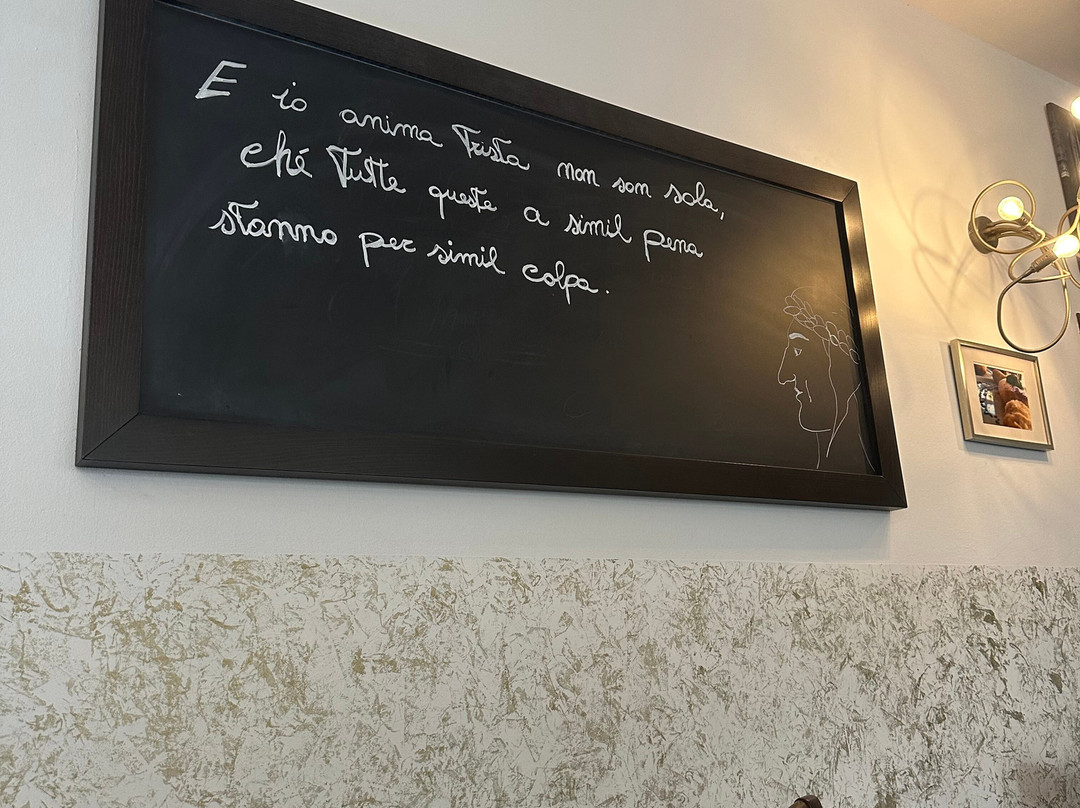 E io anima trista non son sola,
ché tutte queste a simil pena
stanno per simil colpa.